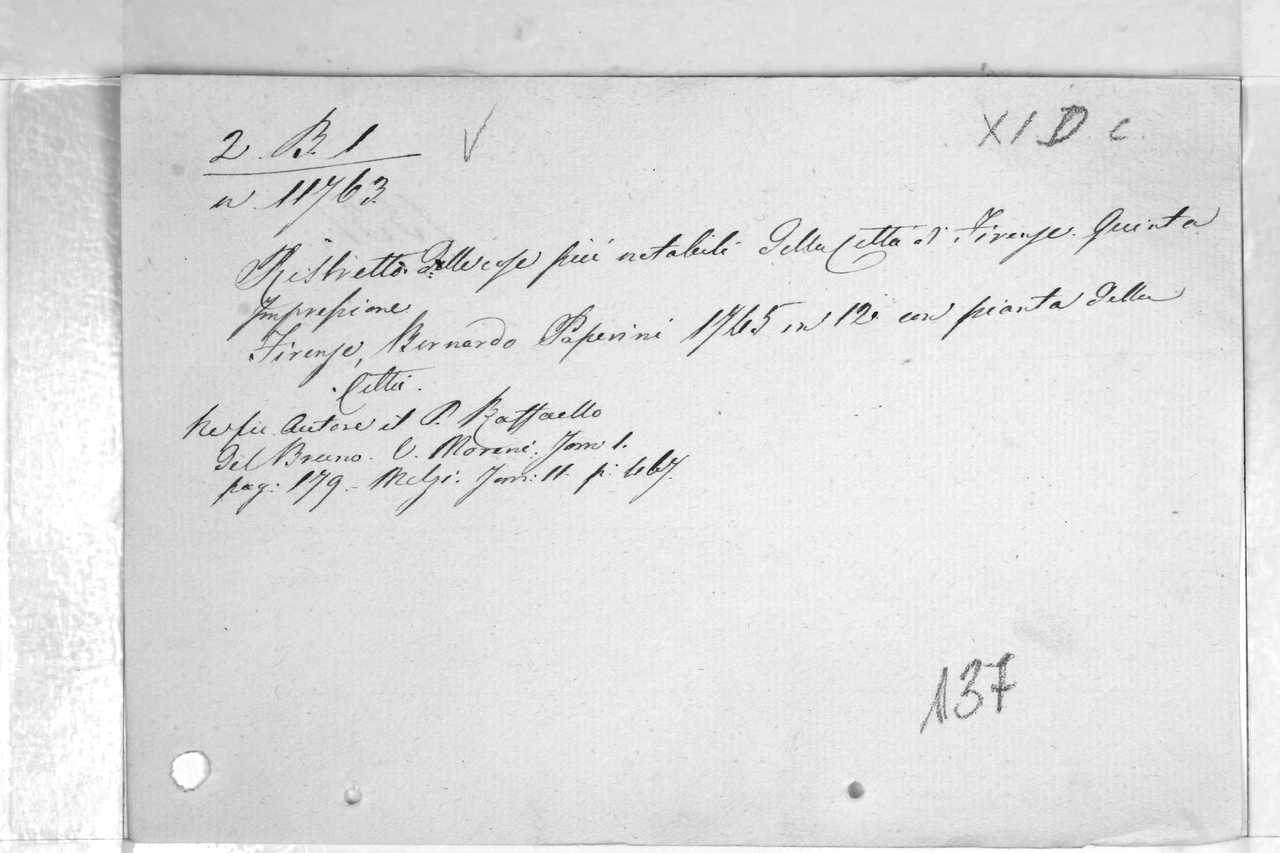 2. B. 1
n. 11763
V
XI D c.
Ristretto delle cose più notabili della Città di Firenze. Quinta
Impressione
Firenze, Bernardo Paperini 1765 in 12 con pianta della
Città.
Ne fu Autore il P. Raffaello
del Bruno. V. Moreni. Tom 1.
pag: 179. Melzi. Tom: 11. p:
137